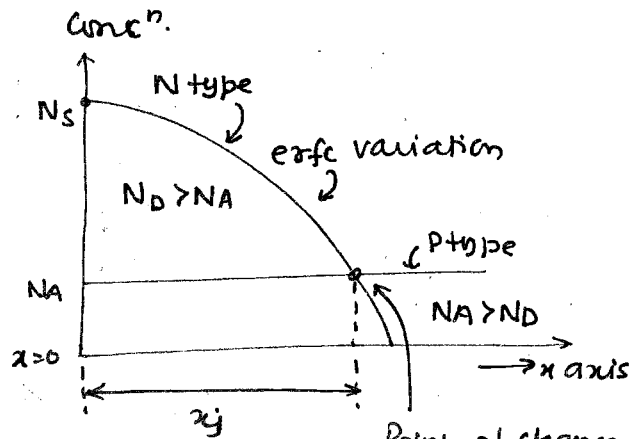 Concⁿ.
N type
NS
erfc variation
ND > NA
P type
NA
NA > ND
x=0
→ x axis
xj
Point of change